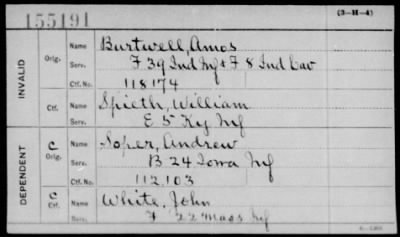 155191
(3-H-4)
INVALID
Orig. Name Burtwell, Amos
Serv. F 39 Ind Inf & F 8 Ind Cav
Ctf. No. 118174
Ctf. Name Spieth, William
Serv. E 5 Ky Inf
DEPENDENT
C Orig. Name Soper, Andrew
Serv. B 24 Iowa Inf
Ctf. No. 112,103
C Ctf. Name White, John
Serv. F 22 Mass Inf